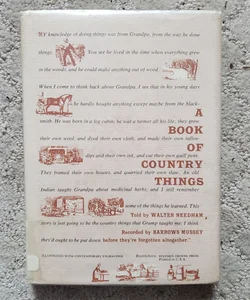 MY knowledge of doing things was from Grandpa, from the way he done
things. You see he lived in the time when everything grew
in the woods, and he could make anything out of wood.
When I come to think back about Grandpa, I see that in his young days
he hardly bought anything except maybe from the black-
smith. He was born in a log cabin; he was a farmer all his life; they grew
A
BOOK
their own wool, and dyed their own cloth, and made their own tallow
OF
dips and their own
and cut their own
COUNTRY
They framed their own houses, and quarried their own slate. An old
THINGS
Indian taught Grandpa about medicinal herbs, and I still remember
some of the things he learned. This
Told by WALTER NEEDHAM
story is just going to be the country things that Gramp taught me. I think
Recorded by BARROWS MUSSEY
they'd ought to be put down before they're forgotten altogether."
ILLUSTRATED WITH CONTEMPORARY ENGRAVINGS
Brattleboro: STEPHEN GREENE PRESS
Printed in U.S.A.